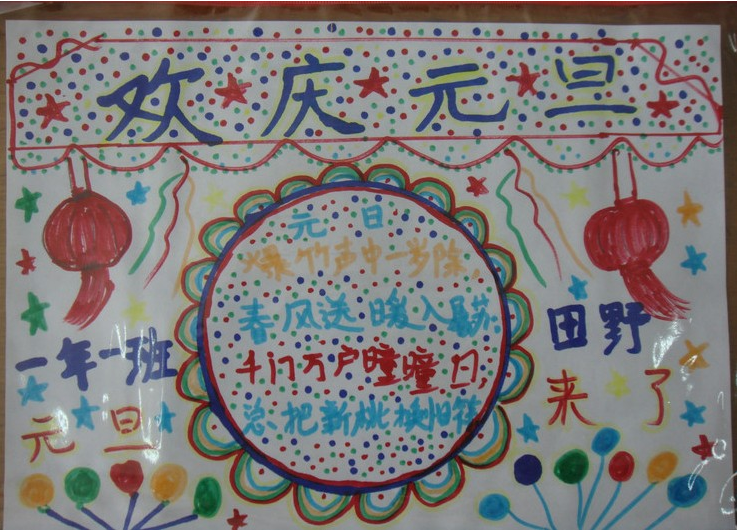 欢庆元旦
元日
爆竹声中一岁除，
春风送暖入屠苏。
千门万户曈曈日，
总把新桃换旧符。
一年一班
元旦
田野
来了